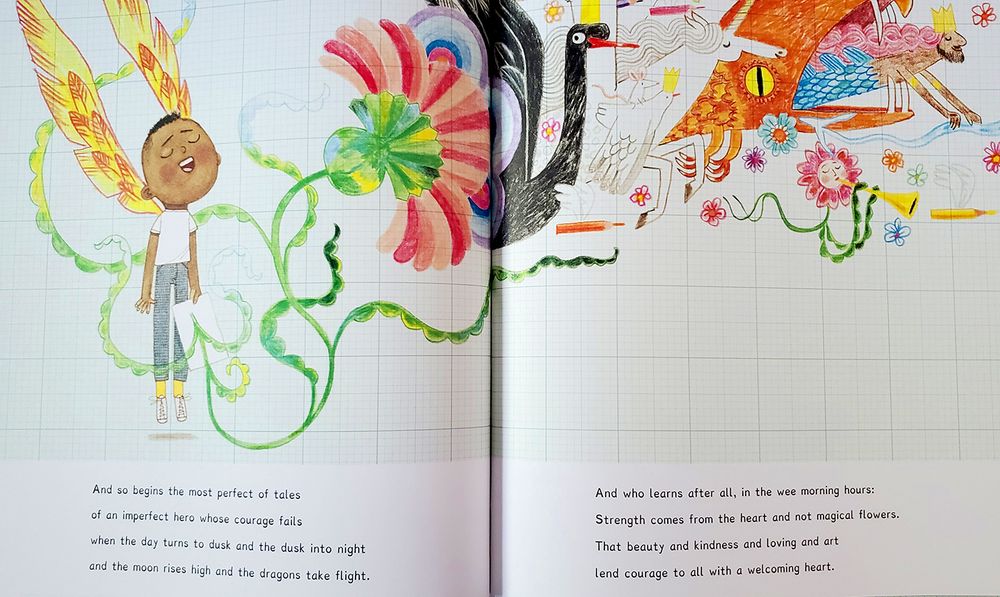 And so begins the most perfect of tales
of an imperfect hero whose courage fails
when the day turns to dusk and the dusk into night
and the moon rises high and the dragons take flight.
And who learns after all, in the wee morning hours:
Strength comes from the heart and not magical flowers.
That beauty and kindness and loving and art
lend courage to all with a welcoming heart.